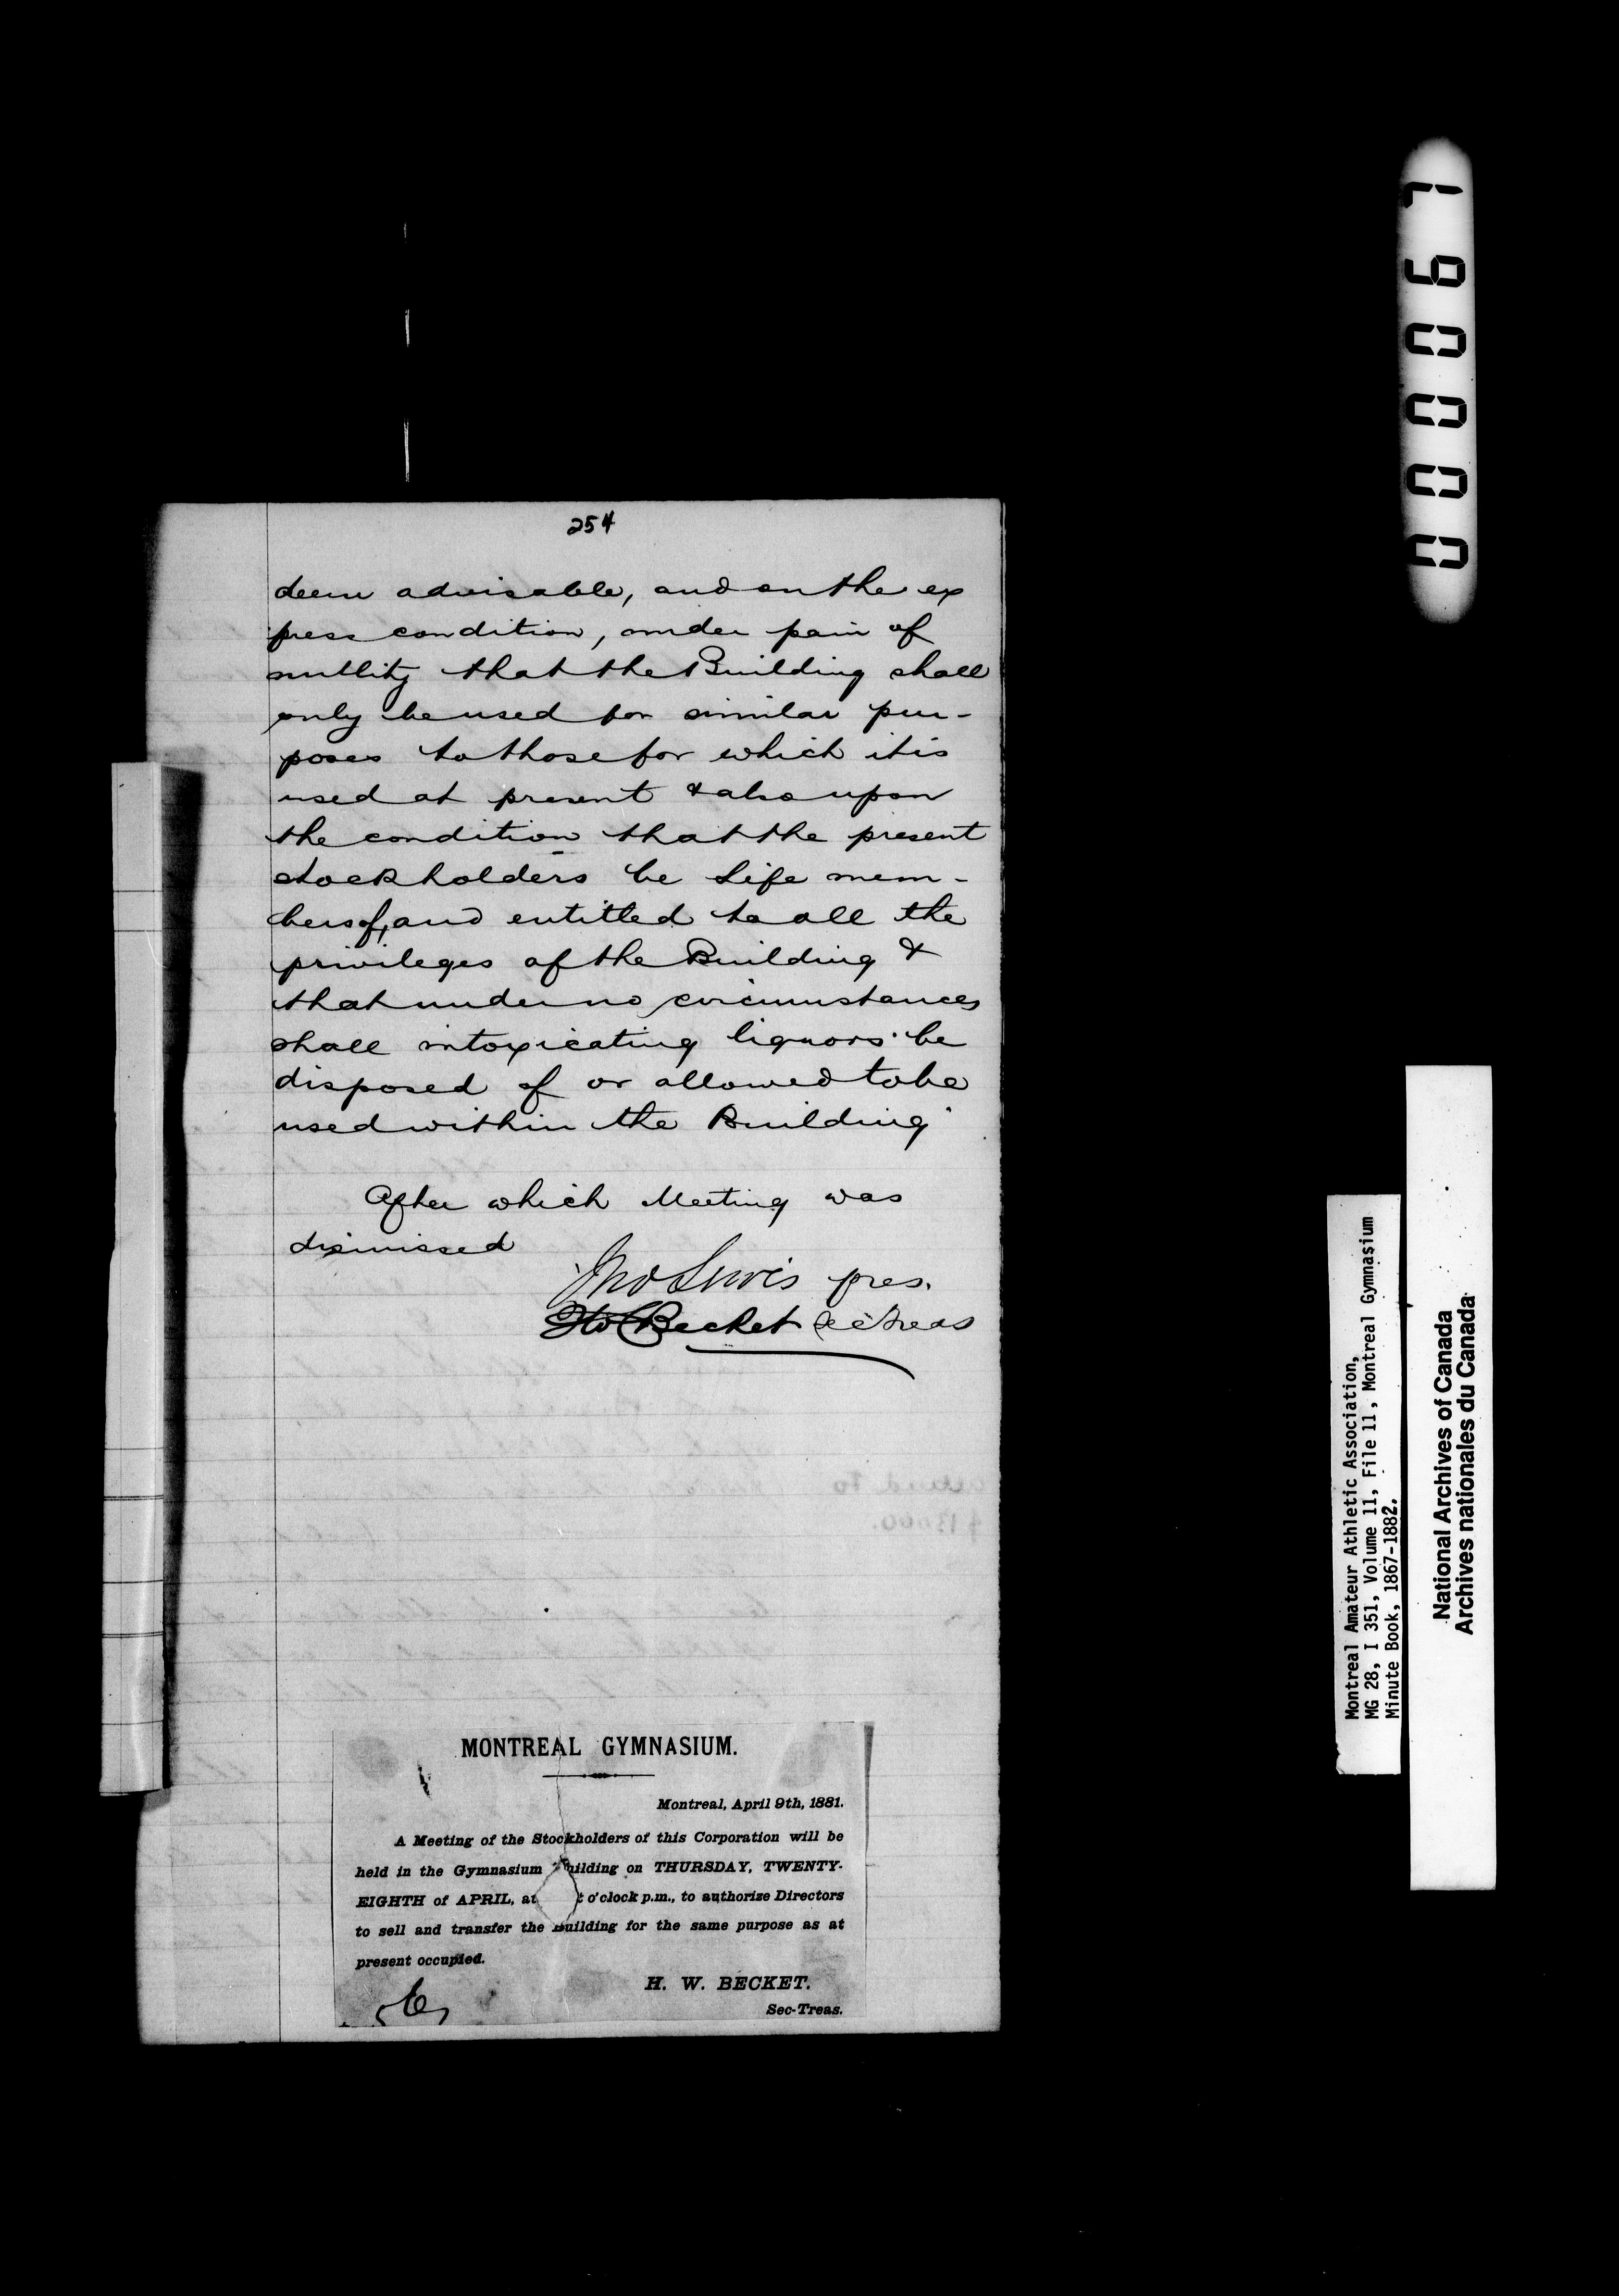 254
deem advisable, and on the ex
press condition, under pain of
nullity that the Building shall
only be used for similar pur-
poses to those for which it is
used at present & also upon
the condition that the present
stockholders be Life mem-
bers of, and entitled to all the
privileges of the Building &
that under no circumstances
shall intoxicating liquors be
disposed of or allowed to be
used within the Building"
After which Meeting was
dismissed
Jno Lewis pres.
HW Becket Sec Treas
MONTREAL GYMNASIUM.
Montreal, April 9th, 1881.
A Meeting of the Stockholders of this Corporation will be
held in the Gymnasium Building on THURSDAY, TWENTY-
EIGHTH of APRIL, at o'clock p.m., to authorize Directors
to sell and transfer the Building for the same purpose as at
present occupied.
H. W. BECKET.
Sec-Treas.
000067
Montreal Amateur Athletic Association,
MG 28, I 351, Volume 11, File 11, Montreal Gymnasium
Minute Book, 1867-1882.
National Archives of Canada
Archives nationales du Canada